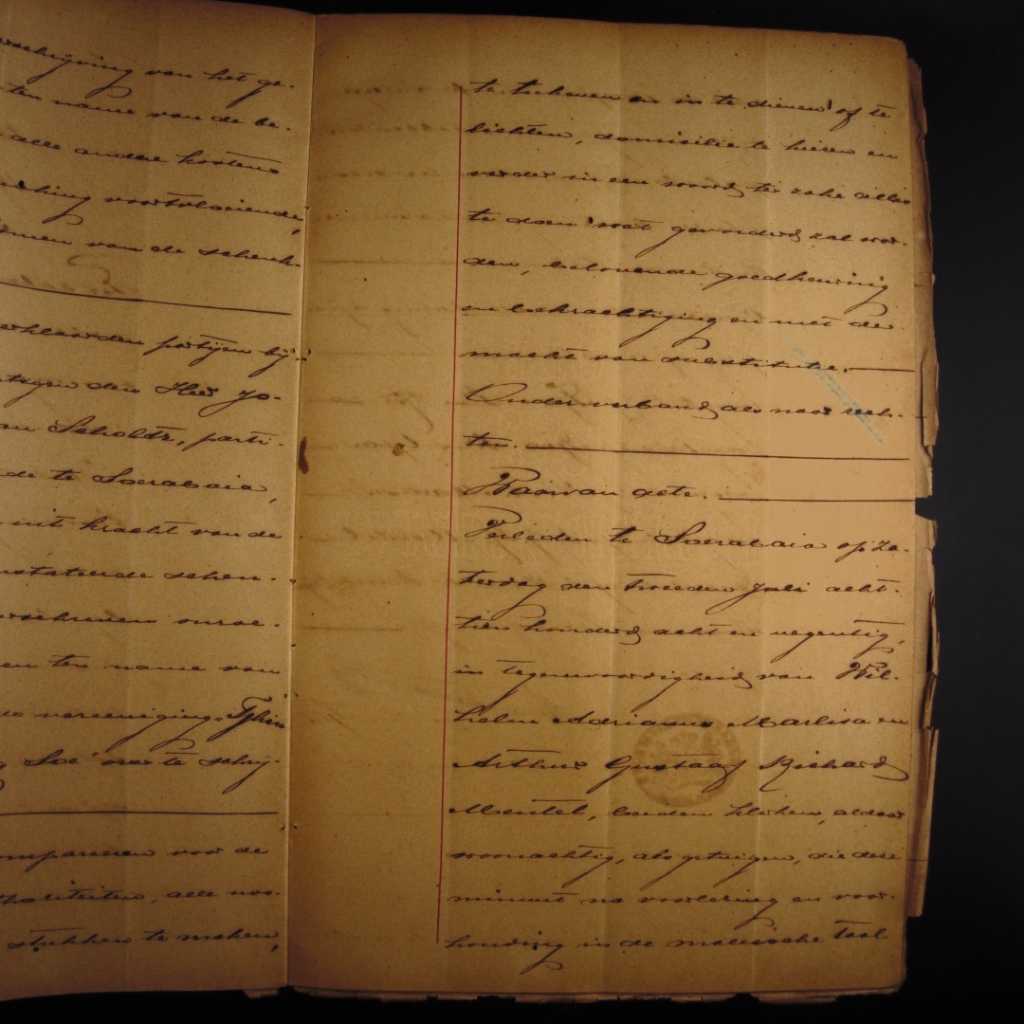 schrijving van het ge-
ten name van de be-
alle andere kosten
king voortvloeiende,
men van de schenk-
verklaarden partijen bij
tegen den Heer Jo-
Scholtz, parti-
de te Soerabaia,
uit kracht van de
constateerde schen-
schreven onroe-
en ten name van
vereeniging Tjhin
Soe" over te schrij-
comparanten voor de
autoriteiten, alle noo-
stukken te maken,
te teekenen en in te dienen of te
lichten, domicilie te kiezen en
verder in een woord ter zake alles
te doen wat gevorderd zal wor-
den, belovende goedkeuring
en bekrachtiging en met de
macht van substitutie.
Onder verband als naar rech-
ten.
Waarvan acte.
Verleden te Soerabaia op Za-
terdag den tweeden Juli acht-
tien honderd acht en negentig,
in tegenwoordigheid van Wil-
helm Adrianus Marlisa en
Arthur Gustaaf Richard
Mentel, beiden klerken, aldaar
woonachtig, als getuigen, die deze
minuut na voorlezing en voor-
houding in de maleische taal